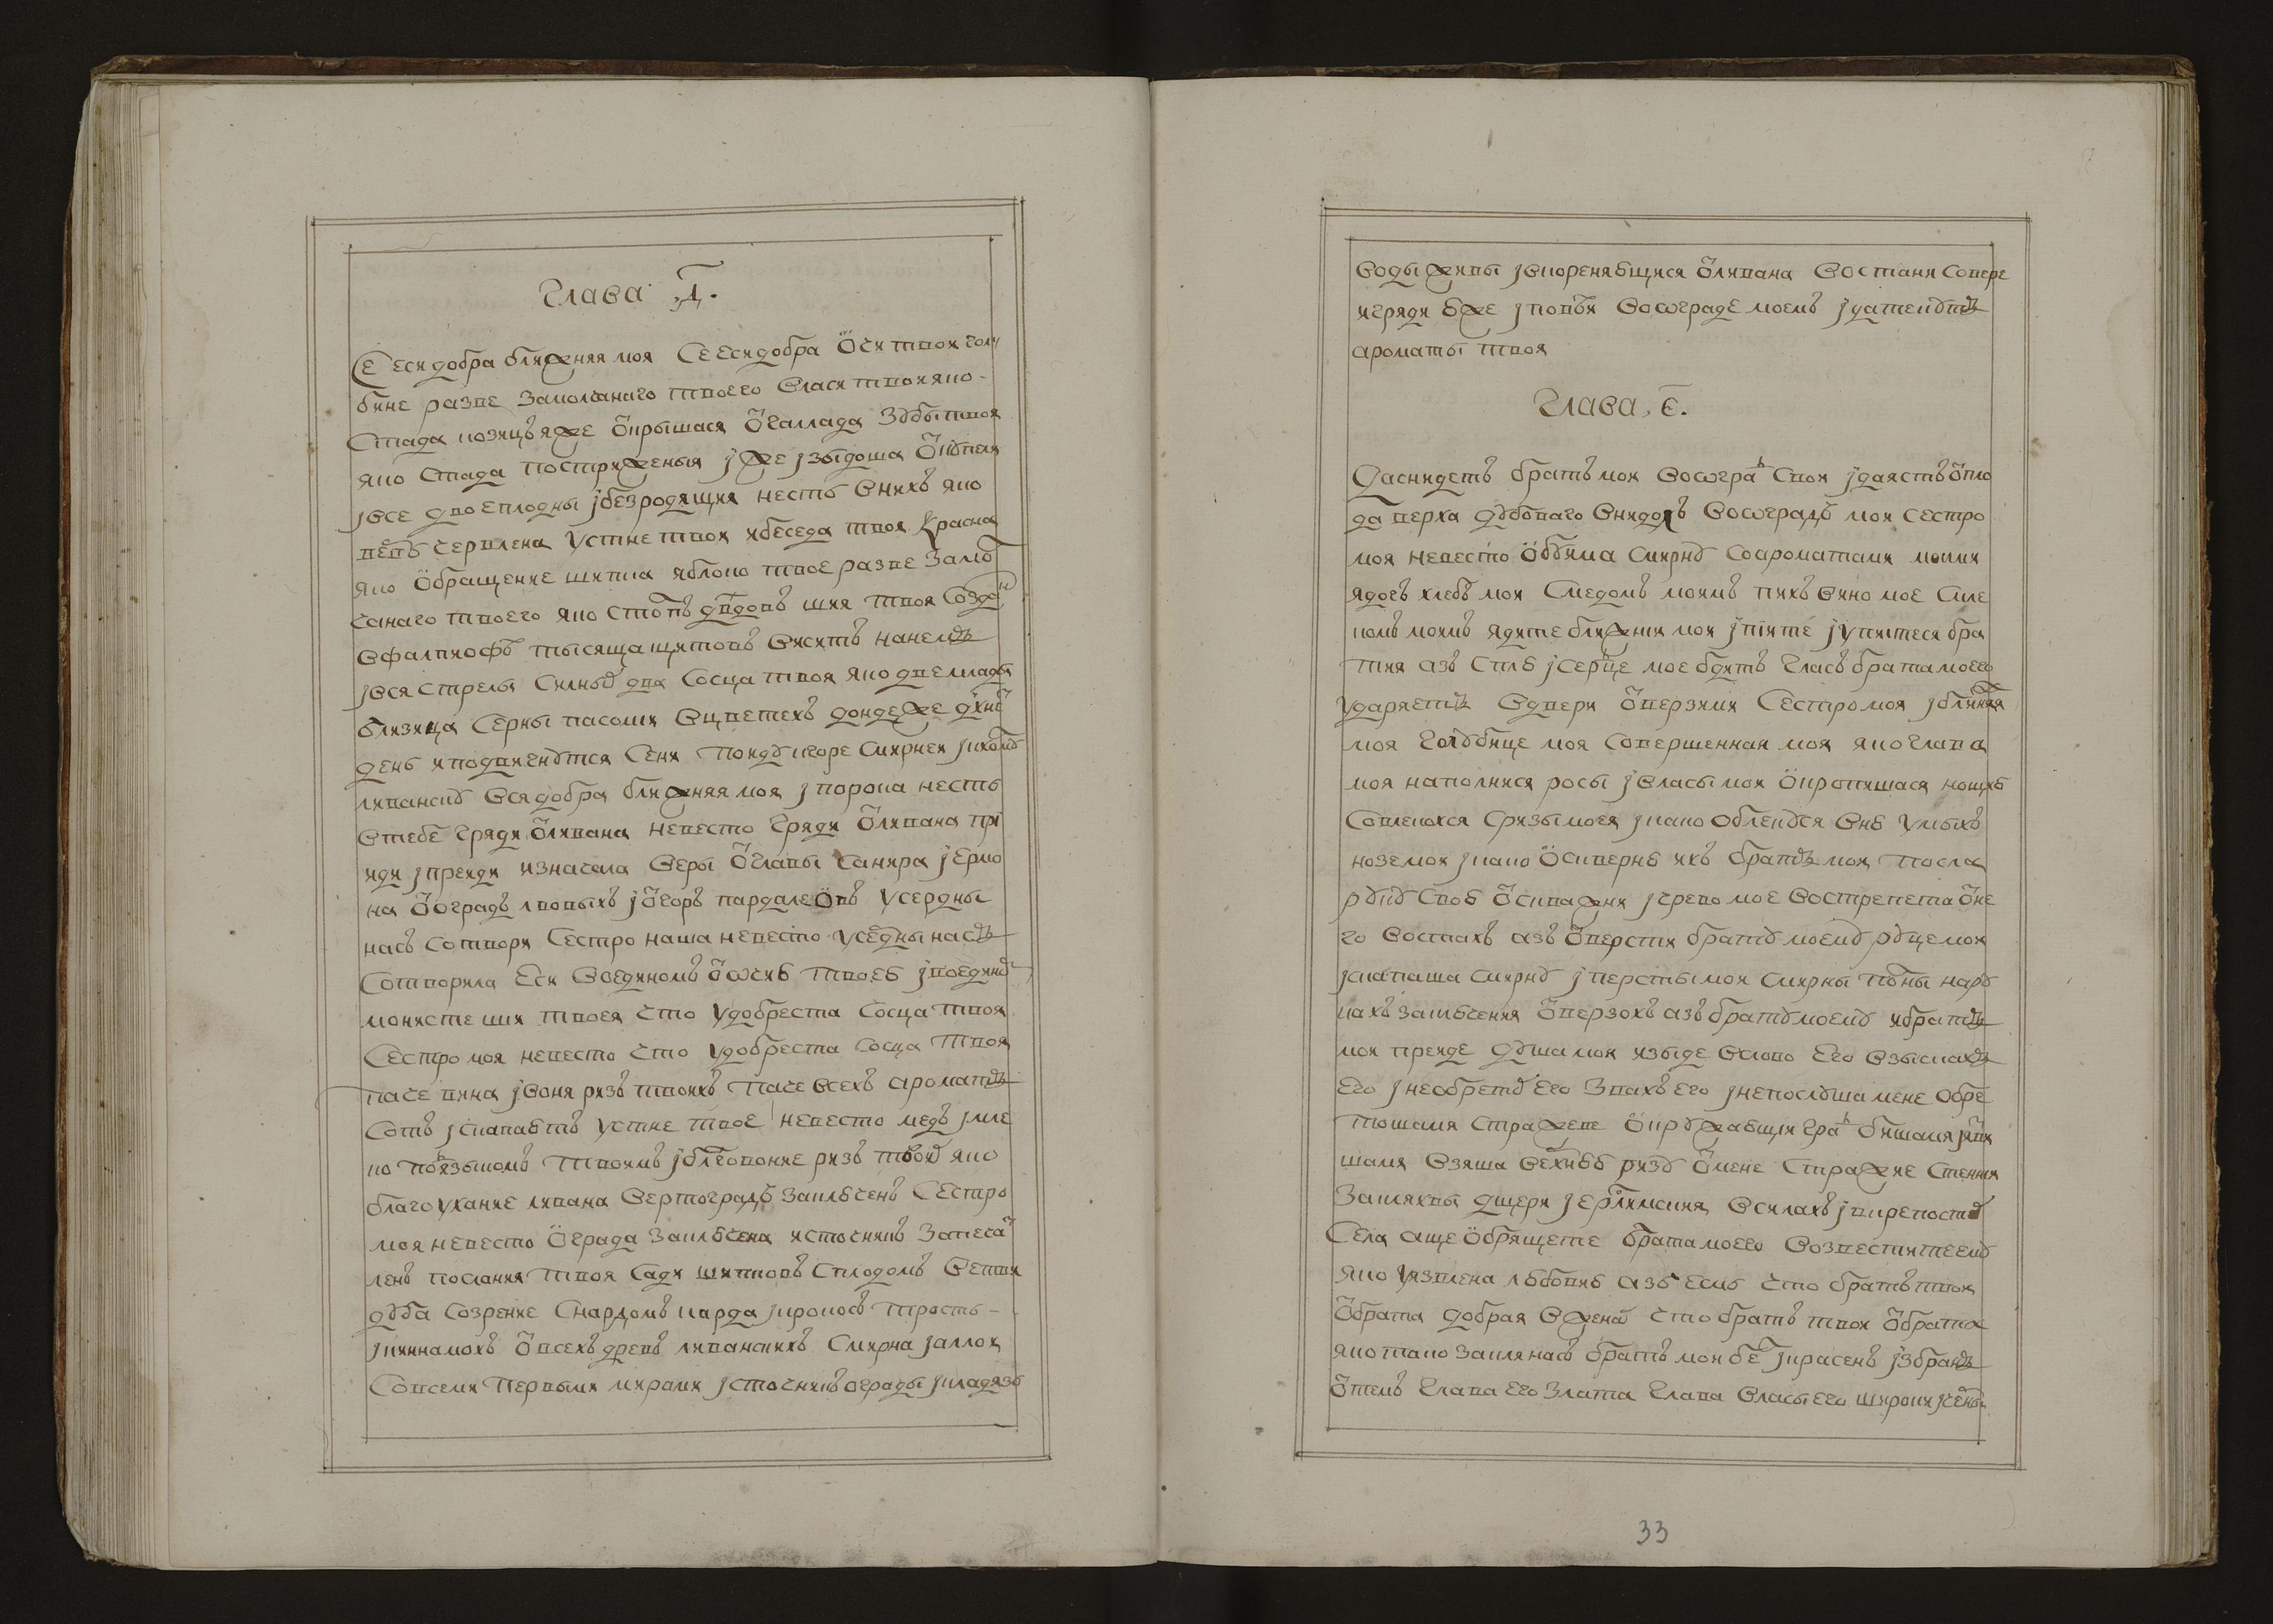 Глава Д҃.
Се еси добра ближняя моя Се еси добра ѿчи твои голу
бине разве замолчанаго твоего власи твои яко
Стада козицъ яже ѿкрышася ѿ галлада Зубы твоя
яко Стада постриженыя јже јзыдоша ѿ купели
јвсе двоеплодны јбезродящия несть внихъ яко
вервь червлена устне твои ибеседа твоя Красна
яко ѿбращение шипка яблоко твое разве Замо
лчанаго твоего яко Столпъ дв҃довъ шия твоя Созда
вфалпиофъ тысяща щитовъ висятъ нанемъ
јвся Стрелы Силныхъ два Сосца твоя яко две млады
близнца Серны пасоми вцветехъ дондеже дхнетъ
день иподвигнутся Сени пойду кгоре Смирнеи јкхолму
ливанску вся добра ближняя моя јпорока несть
втебе гряди ѿ ливана невесто гряди ѿ ливана прі
иди јпреиди изначала веры ѿ главы Санира јермо
на ѿ оградъ лвовыхъ јѿ горъ пардалеѿвъ усердны
насъ Сотвори Сестро наша невесто усердны насъ
Сотворила еси воединомъ ѿ ѡчию твоею јвоединой
монисте шии твоея что удобреста Сосца твоя
Сестро моя невесто что удобреста Сосца твоя
паче вина јвоня ризъ твоихъ паче всехъ ароматъ
Сотъ јскапаютъ устне твое невесто медъ јмле
ко подъ языкомъ твоимъ јблговоние ризъ твоихъ яко
благоухание ливана вертоградъ заключенъ Сестро
моя невесто ѿграда заключена источникъ запеча
ленъ послания твоя Сади шипковъ Сплодомъ ветви
дуба созрение Снардомъ нарда јкрокосъ трость
јкиннамонъ ѿ всехъ древъ ливанскихъ Смирна јаллои
Совсеми первыми мирами јсточникъ ограды јкладязь
воды живы јвкоренябщися ѿ ливана востани Севере
игряди юже јповеи восѡграде моемъ јдатекутъ
ароматы твоя
Глава, Е҃.
Даснидетъ братъ мои восѡградъ Свои јдаястъ ѿпло
да верха дубоваго Внидохъ восѡградъ мои сестро
моя невесто ѿбѣяма Смирну Соароматами моими
ядохъ хлебъ мои Смедомъ моимъ пихъ вино мое Смле
комъ моимъ ядите ближнии мои јпіите јупиитеся бра
тия азъ Сплю јсерце мое бдитъ гласъ братамоего
ударяетъ вдвери ѿверзими Сестро моя јближняя
моя голубице моя Совершенная моя яко глава
моя наполнися росы јвласы мои ѿкропишася нощию
Совлекохся Сризы моея јкако облекуся вню умыхъ
нозе мои јкако ѿскверню ихъ братъ мои посла
руку Свою ѿ скважни јчрево мое вострепета ѿне
го востахъ азъ ѿверсти брату моему руце мои
јскапаша Смирну јперсты мои Смирны полны нару
кахъ заключения ѿверзохъ азъ брату моему ибратъ
мои преиде душа моя изыде вслово его взыскахъ
его јнеобретохъ его Звахъ его јнепослуша мене обре
тошамя Стражеве ѿкружающии градъ бишамя јязви
шамя взяша верхнюю ризу ѿ мене Стражие Стеннии
Закляхвы дщери јерслимския всилахъ јвкрепостехъ
Села аще ѿбрящете брата моего возвестите ему
яко уязвлена любовию азъ есмь что братъ твои
ѿ брата добрая вженахъ что братъ твои ѿ брата
яко тако закля насъ братъ мои белъ јкрасенъ јзбранъ
ѿ темъ глава его злата глава власы его широки јчерны
33